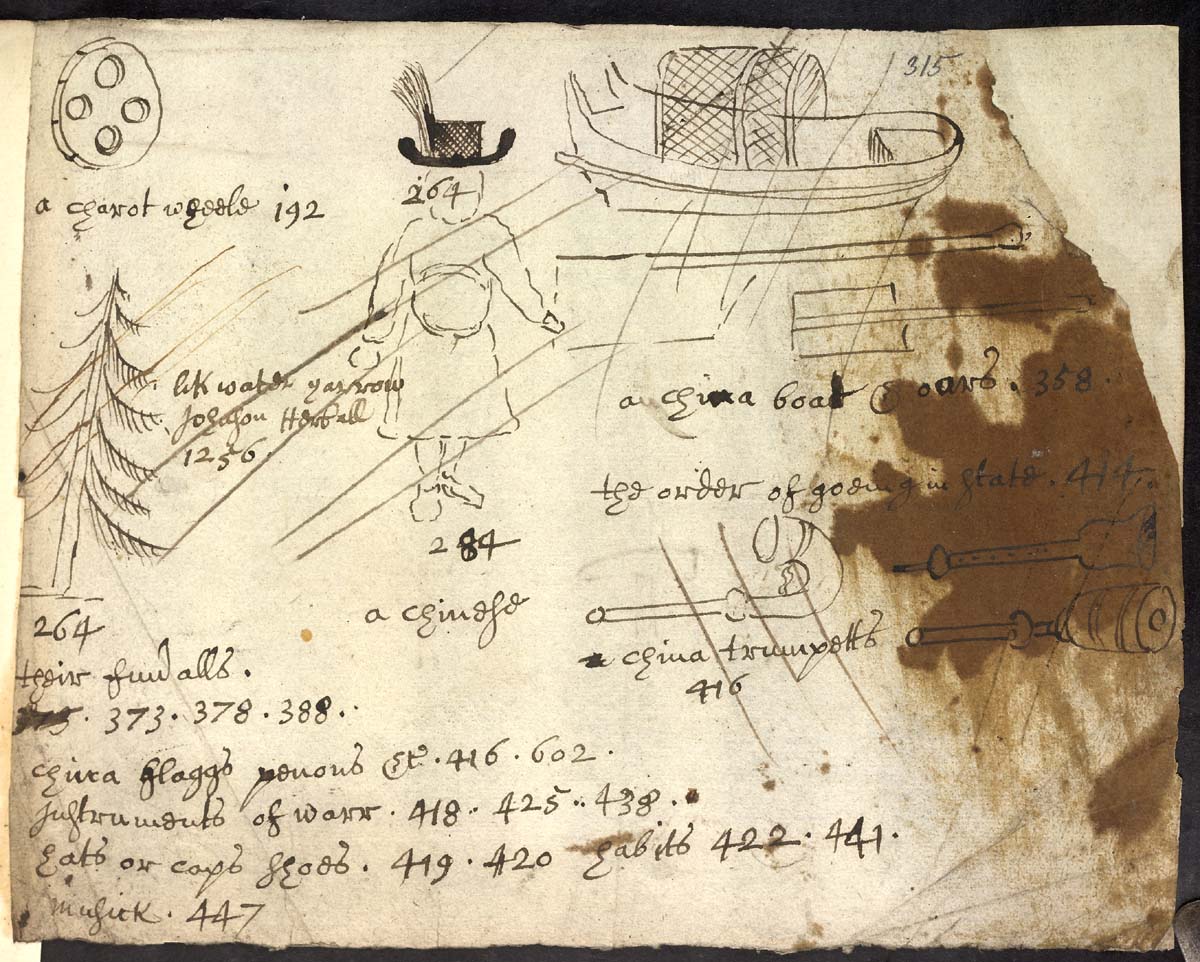 315
a charot wheele 192
264
lik water yarrow
Johnson Herball
1256.
a china boat & oars. 358.
the order of goeing in state. 414.
284
a chinese
264
a china trumpetts
416
their funeralls.
373. 378. 388.
china flaggs penons &c. 416. 602.
Instruments of warr. 418. 425. 438.
hats or caps shoes. 419. 420 habits 422. 441.
musick. 447